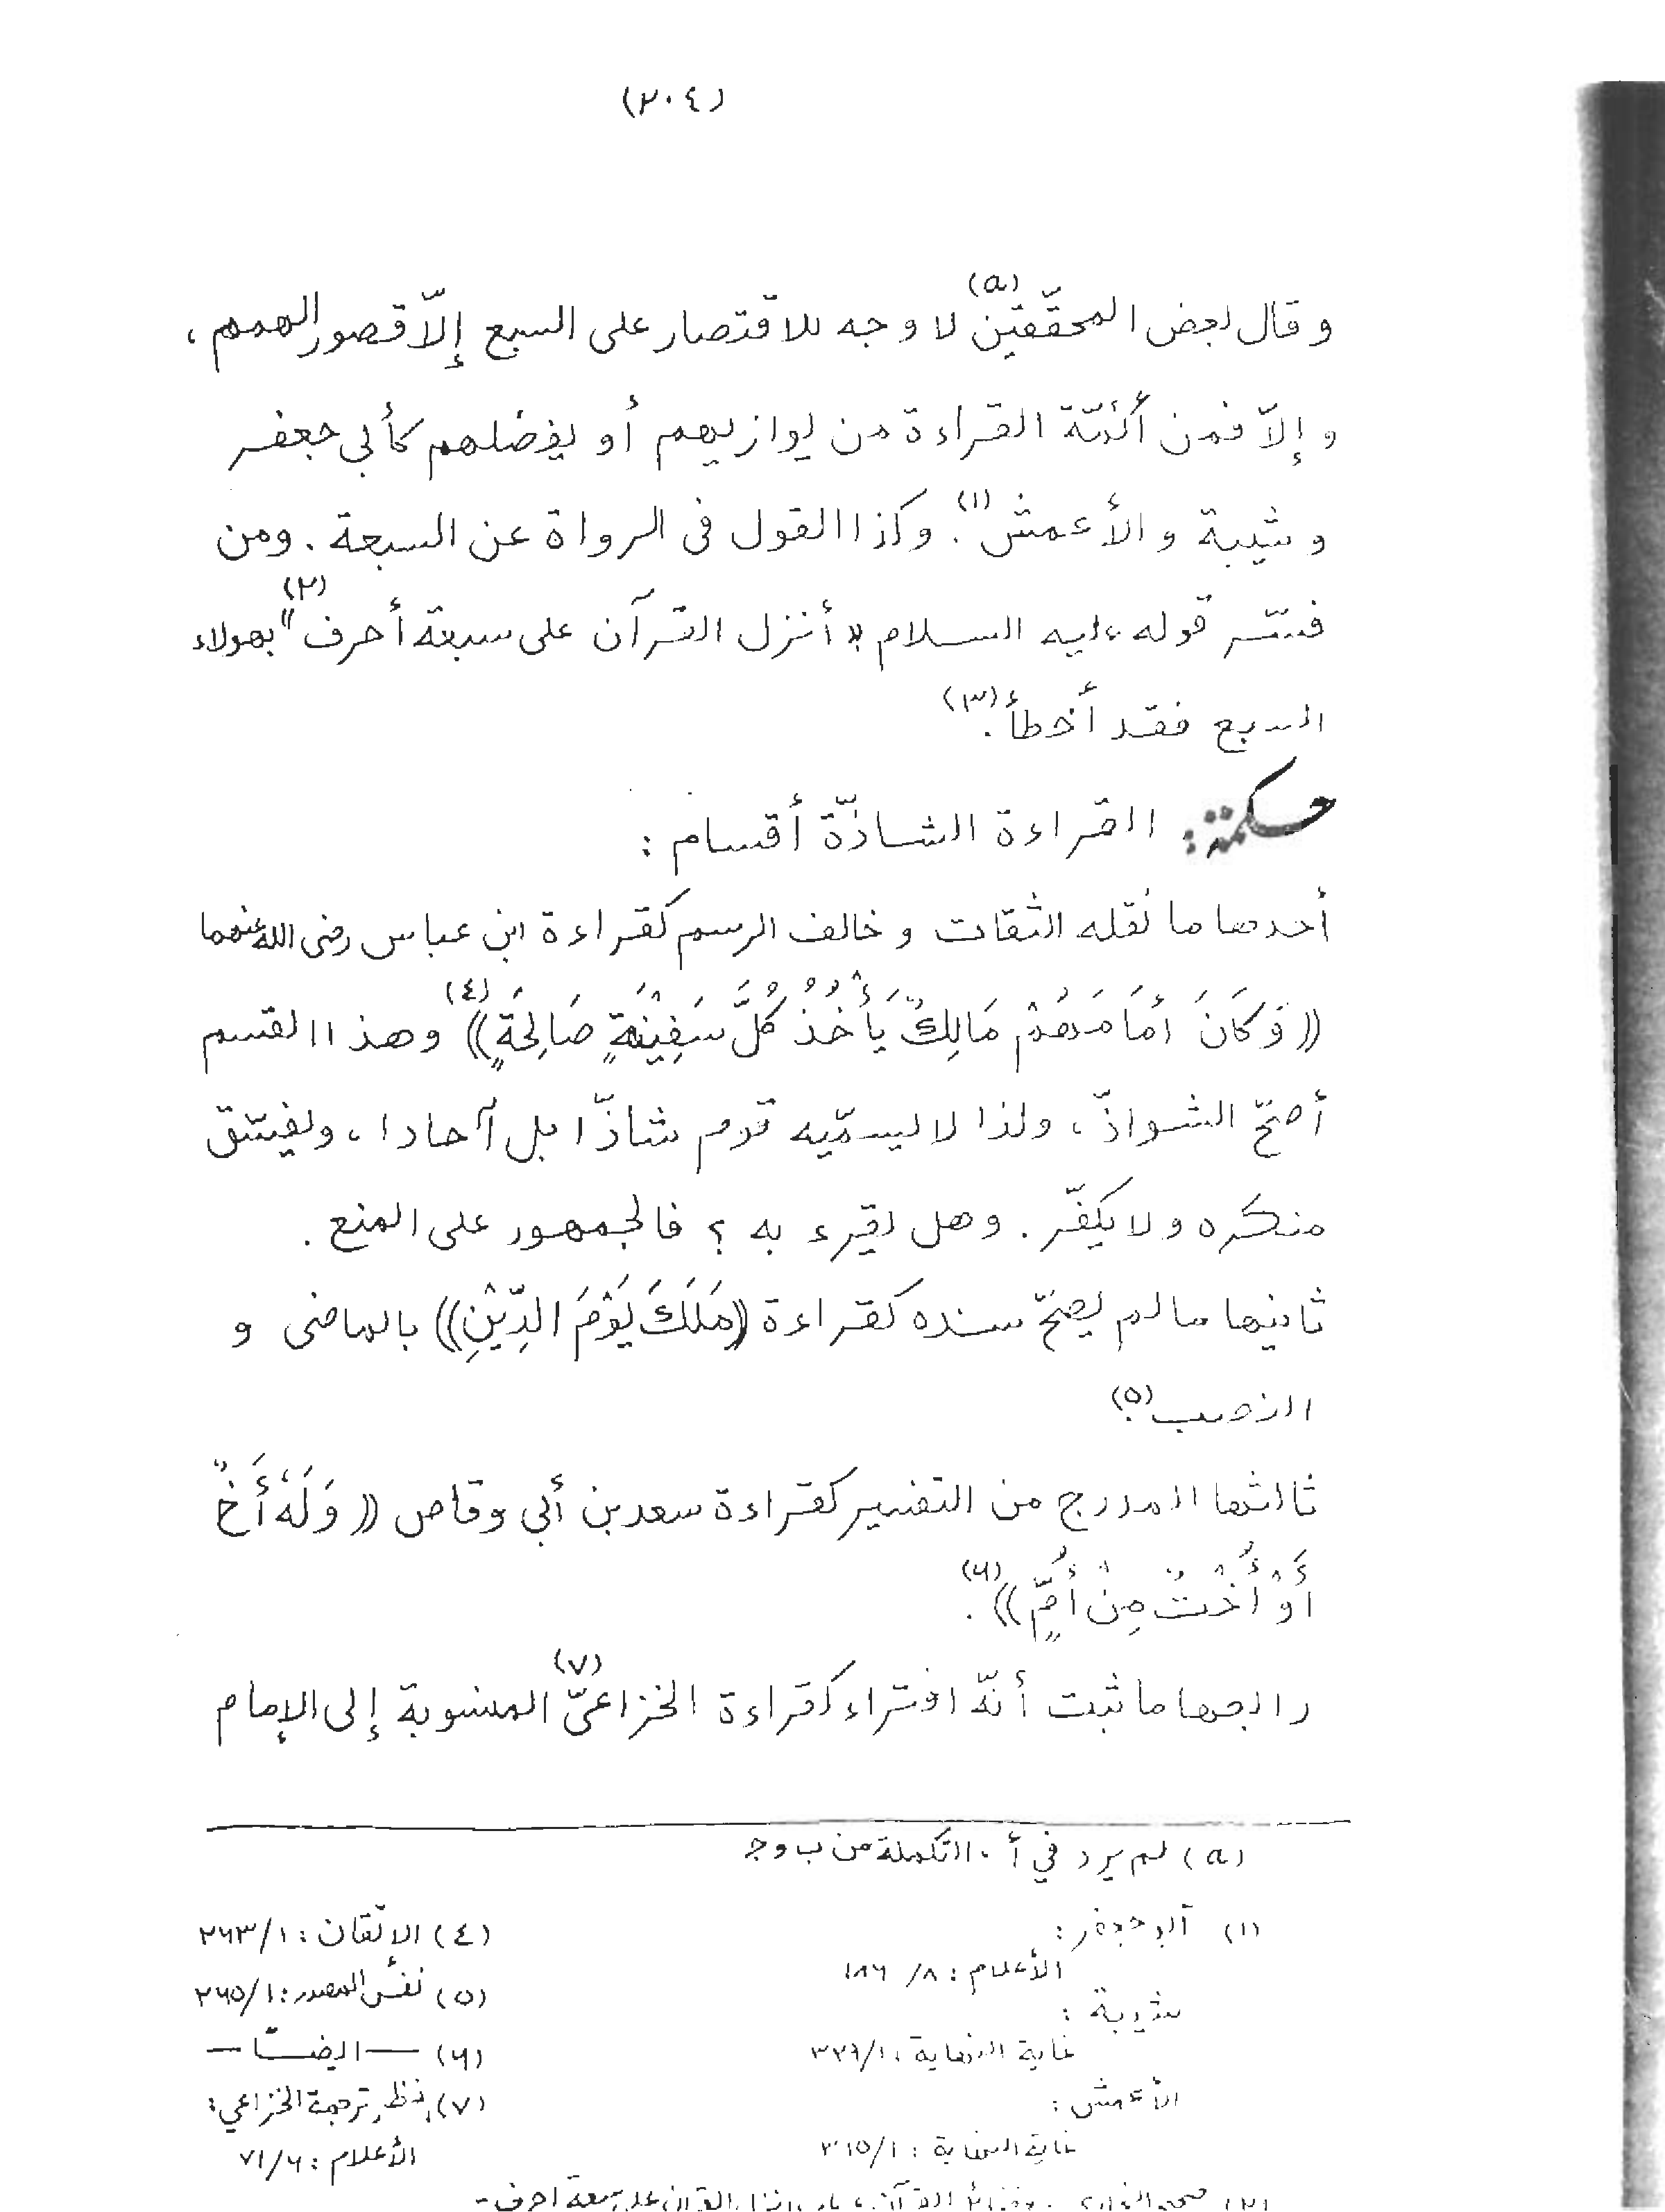 (٢٠٤)
وقال بعض المحقّقين(a) لا وجه للاقتصار على السبع إلّا قصور الهمم ،
و إلّا فمن أئمّة القراءة من يوازيهم أو يفضلهم كأبى جعفر
و شيبة و الأعمش(١). وكذا القول فى الرواة عن السبعة . ومن
فسّر قوله عليه السلام « أنزل القرآن على سبعة أحرف »(٢) بهولاء
السبع فقد أخطأ(٣).
حكمة: القراءة الشاذّة أقسام :
أحدها ما نقله الثقات و خالف الرسم كقراءة ابن عباس رضى الله عنهما
((وَكَانَ أَمَامَهُمْ مَالِكٌ يَأْخُذُ كُلَّ سَفِيْنَةٍ صَالِحَةٍ))(٤) وهذا القسم
أصحّ الشواذّ ، ولذا لا يسمّيه قوم شاذّا بل آحادا ، ويفسّق
منكره ولا يكفّر . وهل يقرء به ؟ فالجمهور على المنع .
ثانيها ما لم يصحّ سنده كقراءة ((مَلَكَ يَوْمَ الدِّيْنِ)) بالماضى و
النصب(٥).
ثالثها المدرج من التفسير كقراءة سعد بن أبي وقاص ((وَلَهُ أَخٌ
أَوْ أُخْتٌ مِنْ أُمٍّ))(٦) .
رابعها ما ثبت أنّه افتراء كقراءة الخزاعىّ(٧) المنسوبة إلى الإمام
(a) لم يرد في أ . التكملة من ب و ج
(١) أبو جعفر :
الأعلام : ٨/ ١٨٦
شيبة :
غاية النهاية : ٣٢٩/١
الأعمش :
غاية النهاية : ٣١٥/١
(٤) الاتقان : ٢٦٣/١
(٥) نفس المصدر : ٢٦٥/١
(٦) — ايضًا —
(٧) انظر ترجمة الخزاعي :
الأعلام : ٧١/٦
(٢) صحيح البخاري ، فضائل القرآن ، باب انزل القرآن على سبعة احرف -